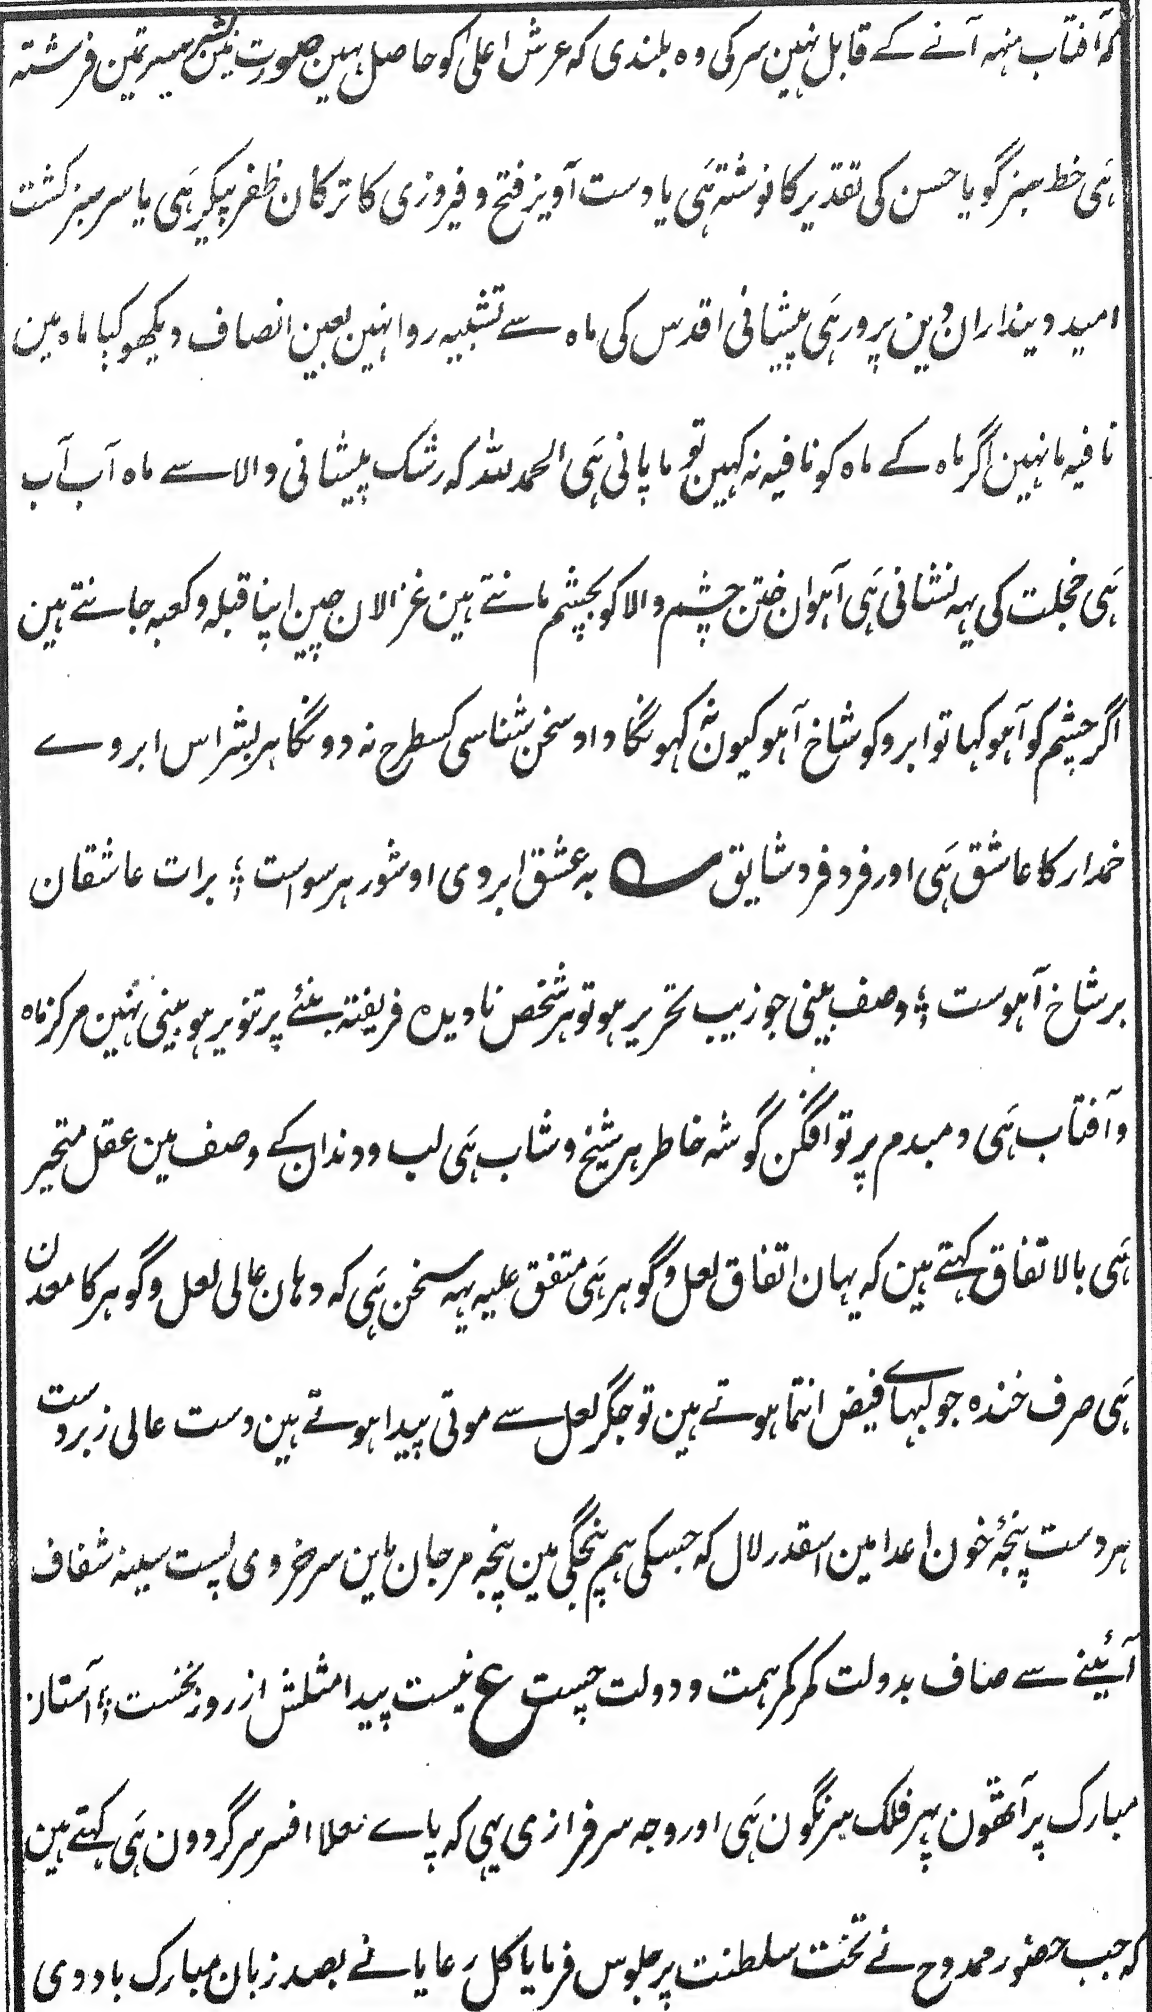 کہ آفتاب منہہ آنے کے قابل نہین سر کی وہ بلندی کہ عرش اعلیٰ کو حاصل نہین صورت مین بشر سیرتمین فرشتہ
ہَی خط سبز گویا حسن کی تقدیر کا نوشتہ ہَی یا دست آویز فتح و فیروزی کا ترکان ظفر پیکر ہَی یا سرسبز کشت
امید دینداران دین پرور ہَی پیشانی اقدس کی ماہ سے تشبیہ روا نہین بعین انصاف دیکھو کیا ماہ مین
نافیہ ما نہین اگر ماہ کے ماہ کو نافیہ نہ کہین تو ما پانی ہَی الحمد للہ کہ رشک پیشانی والا سے ماہ آب آب
ہَی خجلت کی یہہ نشانی ہَی آہوان ختن چشم والا کو بچشم مانتے ہین غزالان چین اپنا قبلہ و کعبہ جانتے ہین
اگر چشم کو آہو کہا تو ابرو کو شاخ آہو کیون نہ کہونگا داد سخن شناسی کسطرح نہ دونگا ہر بشر اس ابروے
خمدار کا عاشق ہَی اور فرد فرد شایق ؎ بہ عشق ابروی او شور ہر سواست ؛ برات عاشقان
بر شاخ آہوست ؛ وصف بینی جو زیب تحریر ہو تو ہر شخص نادیدہ فریفتہ بنئے پر تنویر ہو بینی نہین مرکز ماہ
و آفتاب ہَی دمبدم پرتو افگن گوشہ خاطر ہر شیخ و شاب ہَی لب و دندان کے وصف مین عقل متحیر
ہَی بالاتفاق کہتے ہین کہ یہان اتفاق لعل و گوہر ہَی متفق علیہ یہہ سخن ہَی کہ دہان عالی لعل و گوہر کا معدن
ہَی صرف خندہ جو لبہاے فیض انتما ہوتے ہین تو جگر لعل سے موتی پیدا ہوتے ہین دست عالی زبردست
ہر دست پنجۂ خون اعدا مین اسقدر لال کہ جسکی ہم پنجگی مین پنجہ مرجان باین سرخروی پست سینہ شفاف
آئینے سے صاف بدولت کمر کمر ہمت و دولت چست ع نیست پیدا مثلش از روز نخست ؛ آستان
مبارک پر آٹھون پہر فلک سرنگون ہَی اور وجہ سرفرازی یہی کہ پاے معلا افسر سر گردون ہَی کہتے ہین
کہ جب حضور ممدوح نے تخت سلطنت پر جلوس فرمایا کل رعایا نے بصد زبان مبارک باد دی